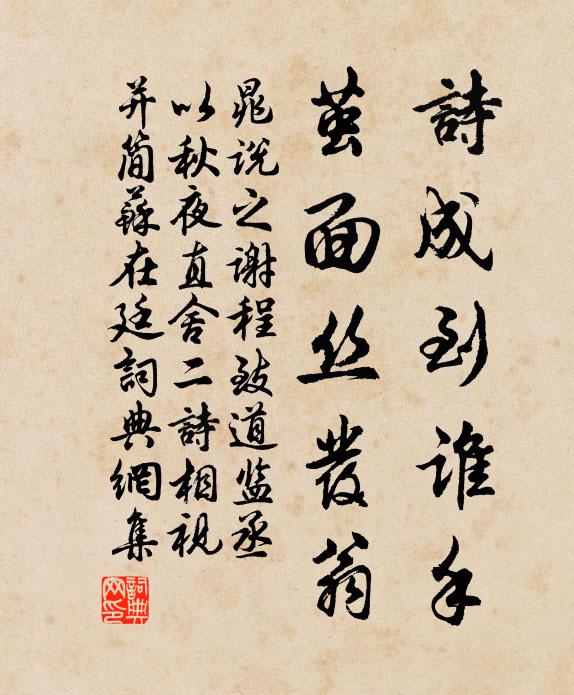 詩成到谁手
茧面丝發翁
晁说之谢程致道监丞
以秋夜直舍二詩相视
并简蘇在廷詞典網集
詞典网印